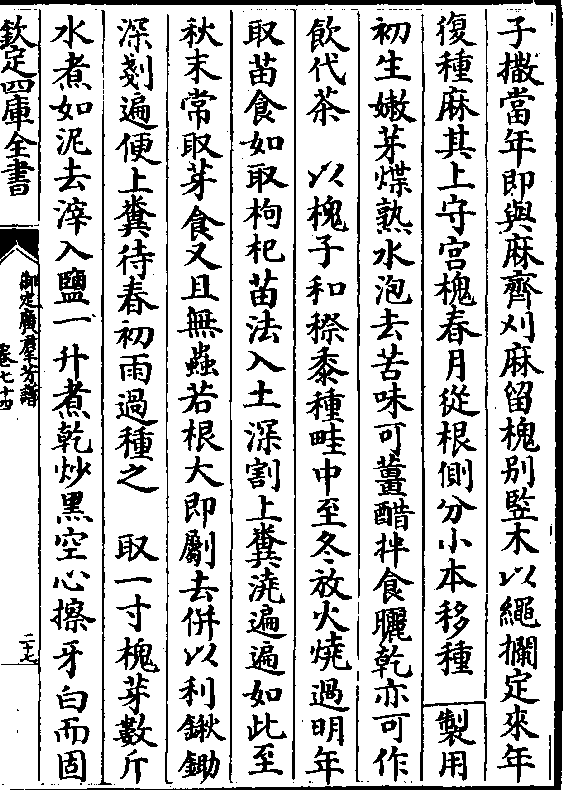 子撒當年即與麻齊刈麻留槐别竪木以繩攔定來年
復種麻其上守宫槐春月從根側分小本移種　製用
初生嫩芽煠熟水泡去苦味可薑醋拌食曬乾亦可作
飲代茶　以槐子和穄黍種畦中至冬放火燒過明年
取苗食如取枸杞苗法入土深割上糞澆遍遍如此至
秋末常取芽食又且無蟲若根大即劚去併以利鍬鋤
深剗遍便上糞待春初雨過種之　取一寸槐芽數斤
水煮如泥去滓入鹽一升煮乾炒黑空心擦牙白而固
欽定四庫全書
御定廣羣芳譜
卷七十四
二十七